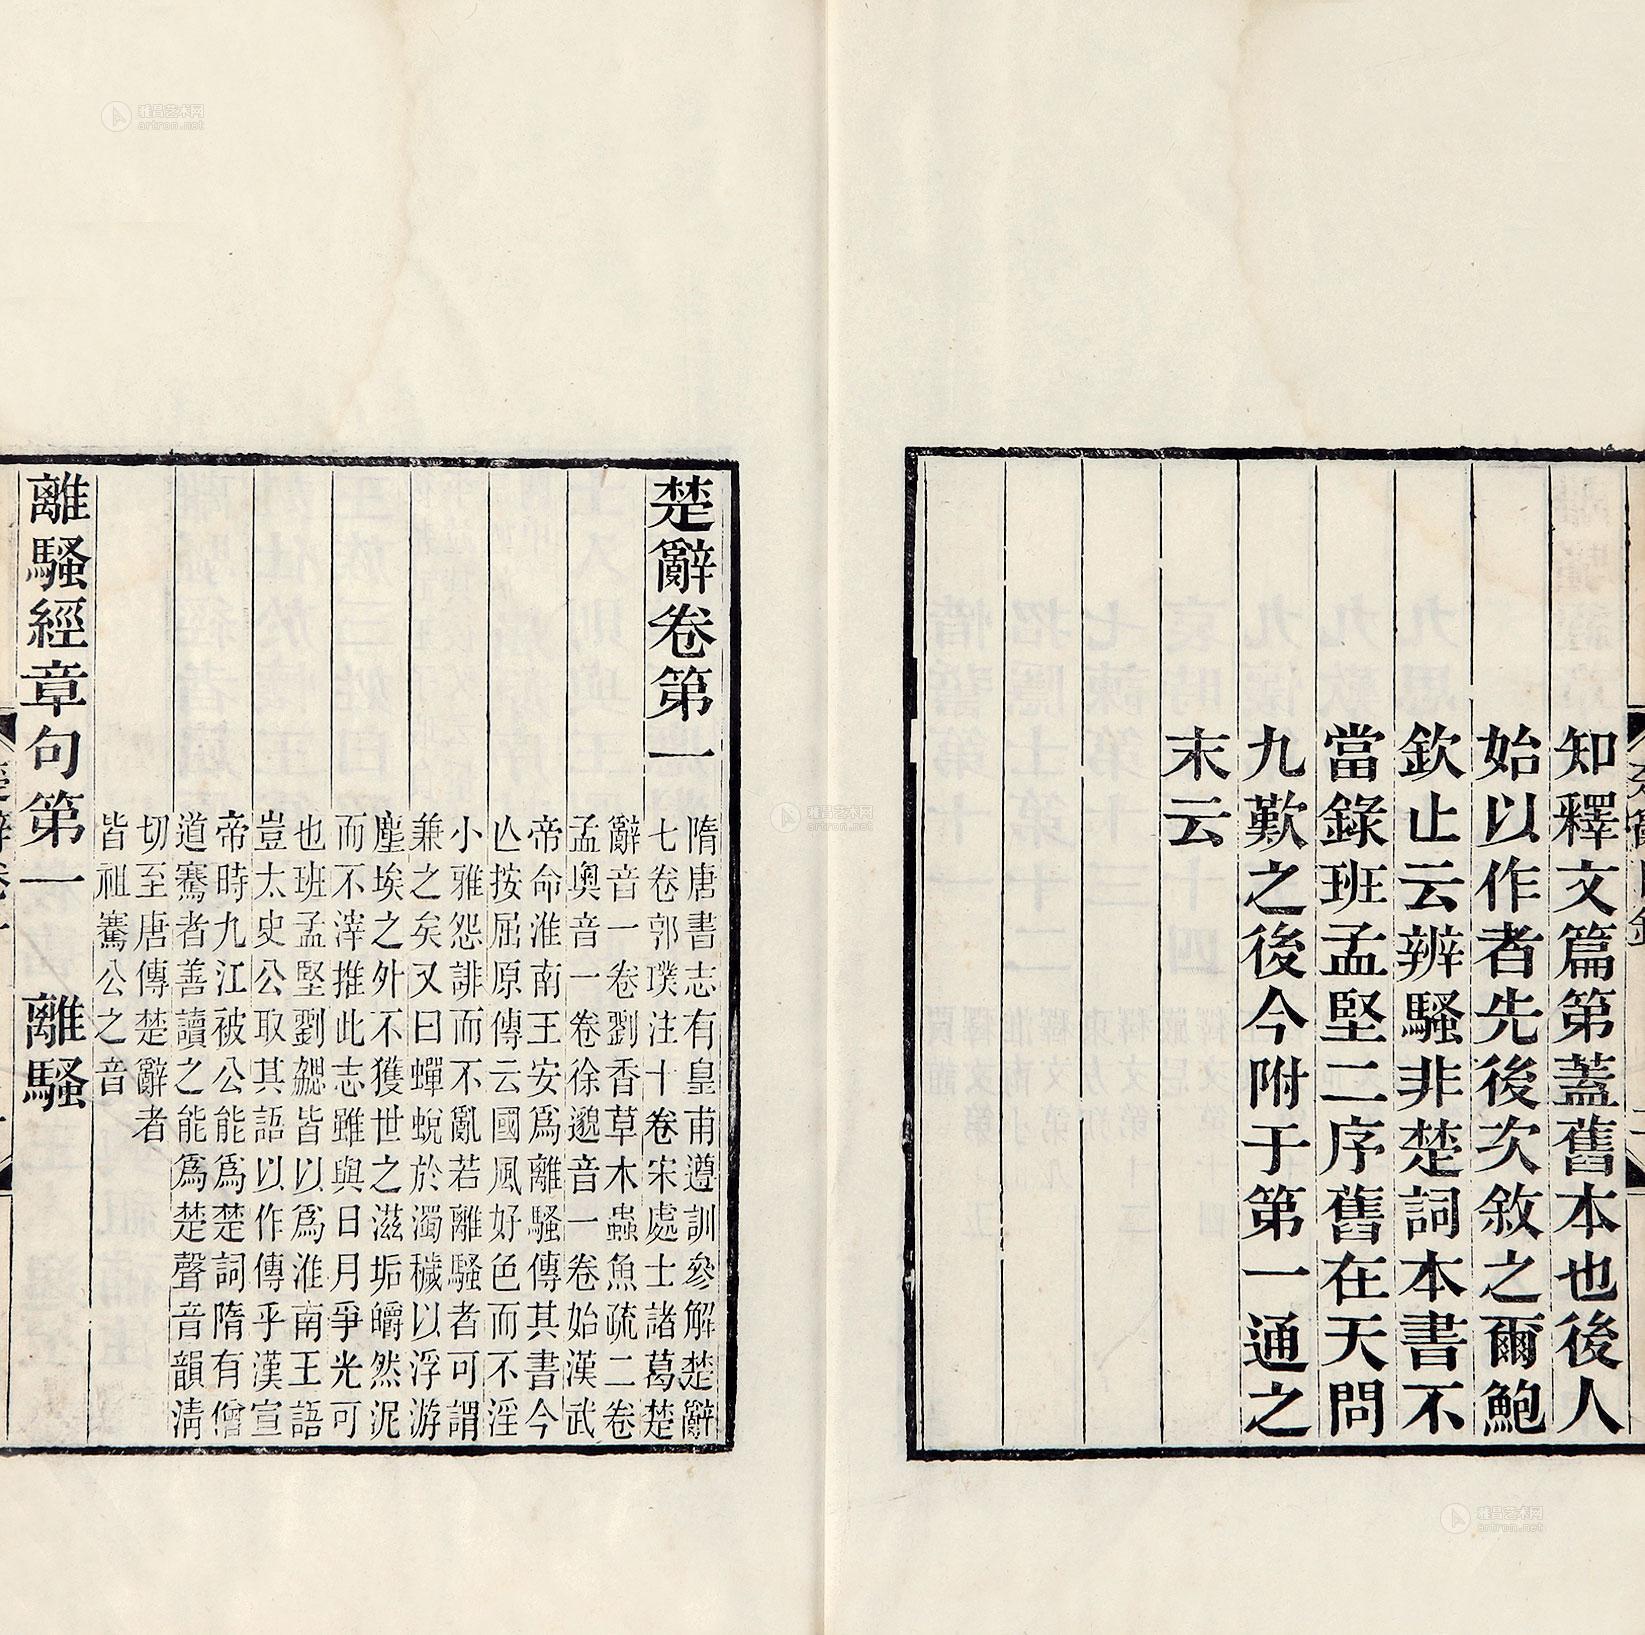 知釋文篇第蓋舊本也後人
始以作者先後次敘之爾鮑
欽止云辨騷非楚詞本書不
當錄班孟堅二序舊在天問
九歎之後今附于第一通之
末云
楚辭卷第一
隋唐書志有皇甫遵訓參解楚辭
七卷郭璞注十卷宋處士諸葛楚
辭音一卷劉杳草木蟲魚疏二卷
孟奧音一卷徐邈音一卷始漢武
帝命淮南王安爲離騷傳其書今
亾按屈原傳云國風好色而不淫
小雅怨誹而不亂若離騷者可謂
兼之矣又曰蟬蛻於濁穢以浮游
塵埃之外不獲世之滋垢皭然泥
而不滓推此志雖與日月爭光可
也班孟堅劉勰皆以爲淮南王語
豈太史公取其語以作傳乎漢宣
帝時九江被公能爲楚詞隋有僧
道騫者善讀之能爲楚聲音韻清
切至唐傳楚辭者
皆祖騫公之音
離騷經章句第一 離騷
雅昌艺术网
artron.net
雅昌艺术网
artron.net
雅昌艺术网
artron.net